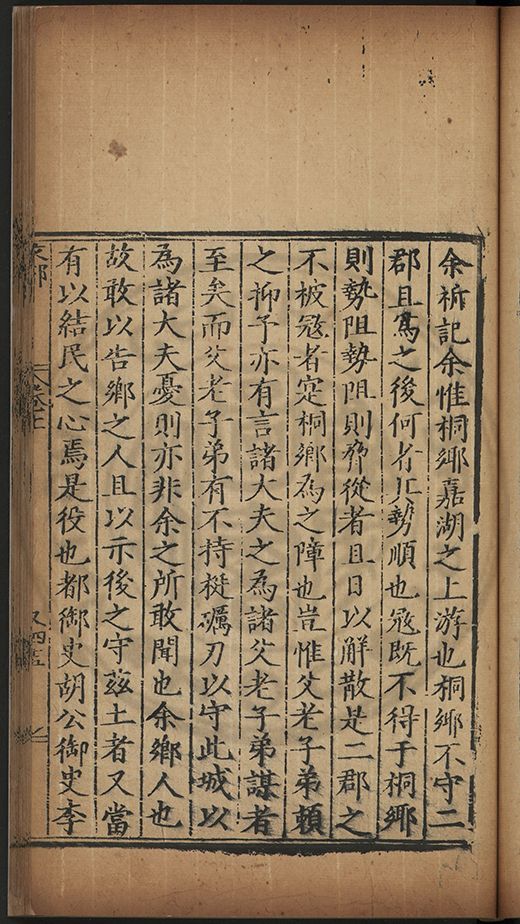 余祈記余惟桐鄉嘉湖之上游也桐鄉不守二
郡且為之後何者其勢順也寇既不得于桐鄉
則勢阻勢阻則脅從者且日以解散是二郡之
不被寇者寔桐鄉為之障也豈惟父老子弟賴
之抑予亦有言諸大夫之為諸父老子弟謀者
至矣而父老子弟有不持梃礪刃以守此城以
為諸大夫憂則亦非余之所敢聞也余鄉人也
故敢以告鄉之人且以示後之守茲土者又當
有以結民之心焉是役也都御史胡公御史李
卷上
又四五